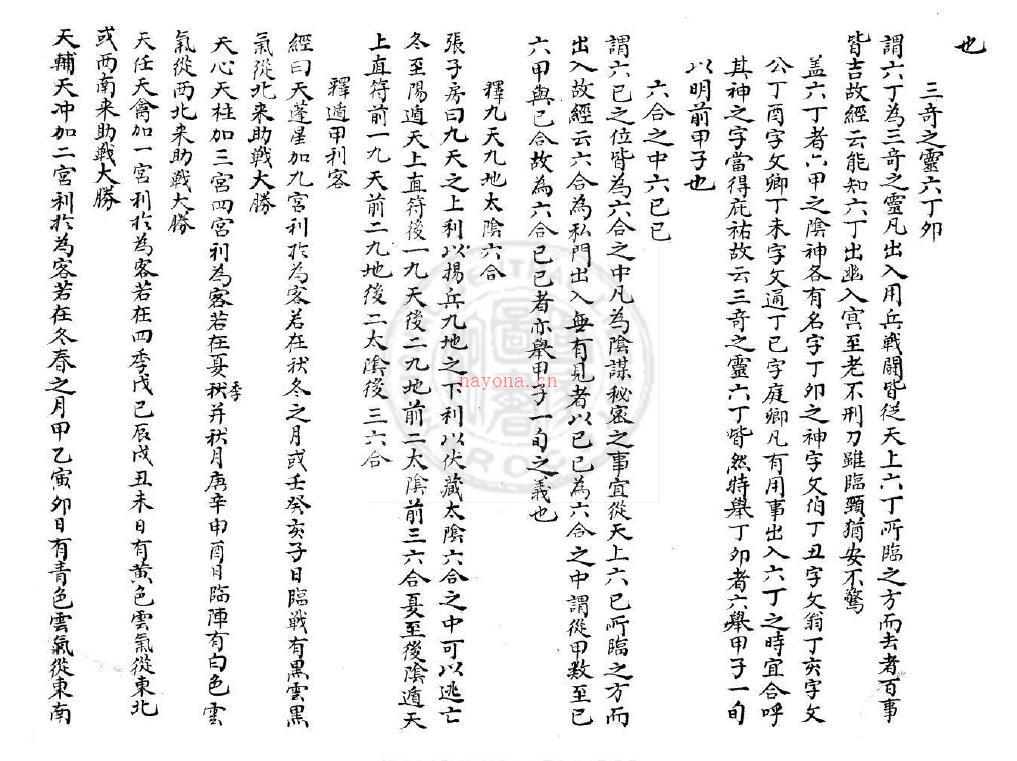 也
三奇之靈六丁卯
謂六丁為三奇之靈凡出入用兵戰鬪皆從天上六丁所臨之方而去者百事
皆吉故經云能知六丁出幽入冥至老不刑刀雖臨頸猶安不驚
盖六丁者六甲之陰神各有名字丁卯之神字文伯丁丑字文翁丁亥字文
公丁酉字文卿丁未字文通丁巳字庭卿凡有用事出入六丁之時宜合呼
其神之字當得庇祐故云三奇之靈六丁皆然特舉丁卯者六舉甲子一旬
以明前甲子也
六合之中六己巳
謂六己之位皆為六合之中凡為陰謀秘密之事宜從天上六己所臨之方而
出入故經云六合為私門出入無有見者以己巳為六合之中謂從甲数至己
六甲與己合故為六合己巳者亦舉甲子一旬之義也
釋九天九地太陰六合
張子房曰九天之上利以揚兵九地之下利以伏藏太陰六合之中可以逃亡
冬至陽遁天上直符後一九天後二九地前二太陰前三六合夏至後陰遁天
上直符前一九天前二九地後二太陰後三六合
釋遁甲利客
經曰天蓬星加九宮利扵為客若在秋冬之月或壬癸亥子日臨戰有黑雲黑
氣從北来助戰大勝
天心天柱加三宮四宮利為客若在夏秋季并秋月庚辛申酉日臨陣有白色雲
氣從西北来助戰大勝
天任天禽加一宮利扵為客若在四季戊己辰戌丑未日有黄色雲氣從東北
或西南来助戰大勝
天輔天冲加二宮利扵為客若在冬春之月甲乙寅卯日有青色雲氣從東南
nayona.cn